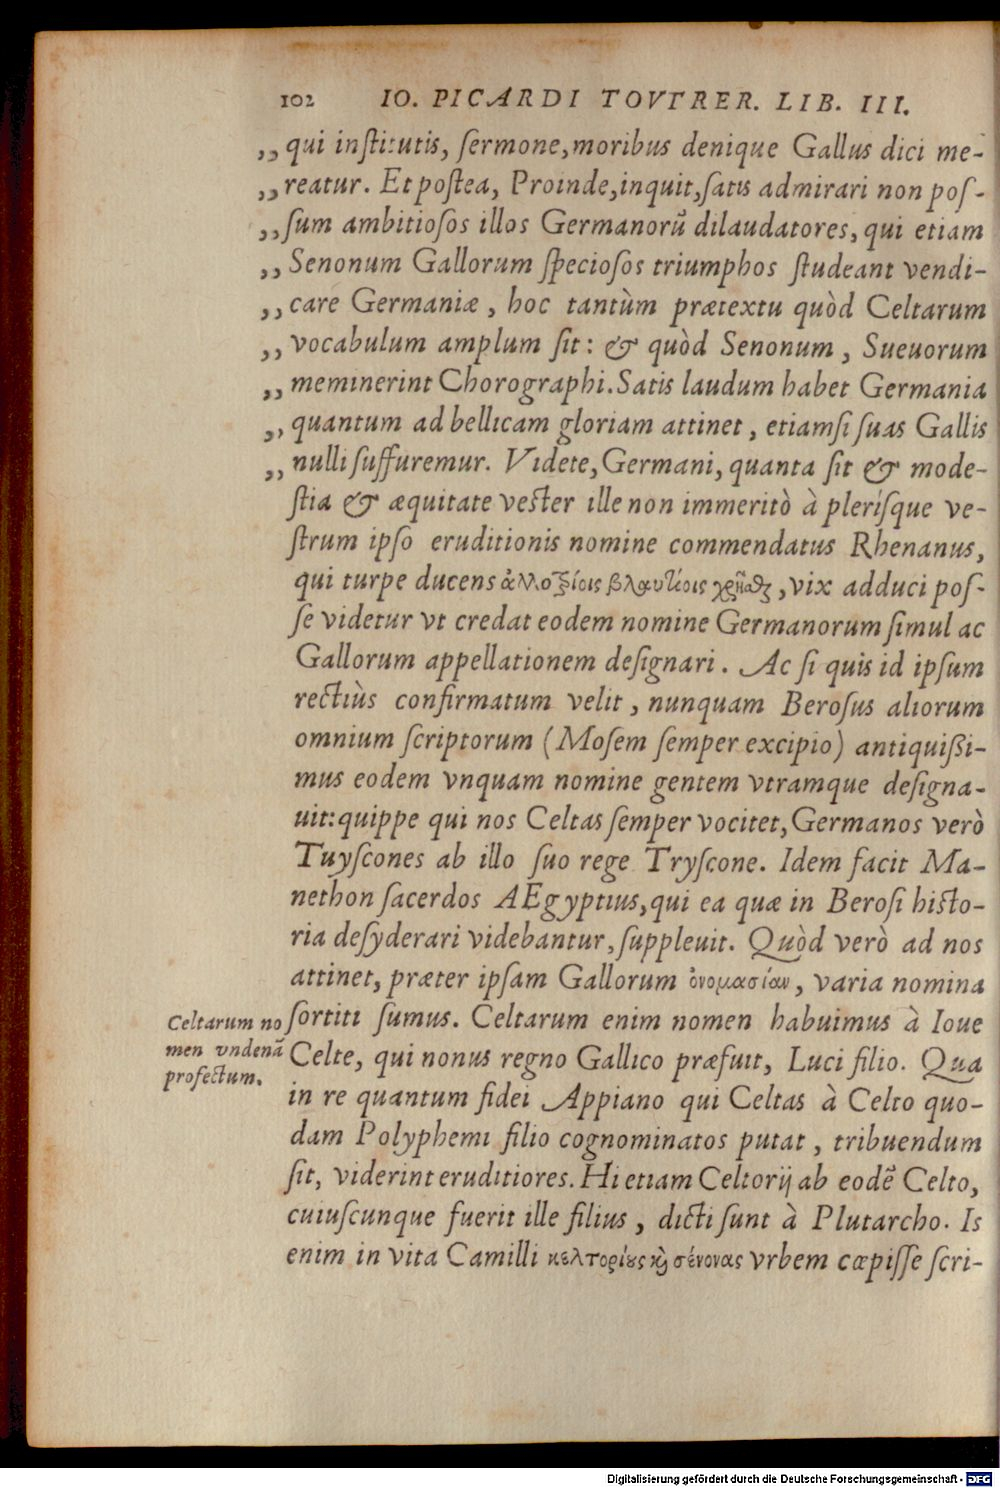 102 IO. PICARDI TOVTRER. LIB. III.
,, qui institutis, sermone, moribus denique Gallus dici me-
,, reatur. Et postea, Proinde, inquit, satis admirari non pos-
,, sum ambitiosos illos Germanorũ dilaudatores, qui etiam
,, Senonum Gallorum speciosos triumphos studeant vendi-
,, care Germaniæ, hoc tantùm prætextu quòd Celtarum
,, vocabulum amplum sit: & quòd Senonum, Sueuorum
,, meminerint Chorographi. Satis laudum habet Germania
,, quantum ad bellicam gloriam attinet, etiamsi suas Gallis
,, nulli suffuremur. Videte, Germani, quanta sit & mode-
stia & æquitate vester ille non immeritò à plerísque ve-
strum ipso eruditionis nomine commendatus Rhenanus,
qui turpe ducens ἀλλοτρίοις βλαυτίοις χρῆσθαι, vix adduci pos-
se videtur vt credat eodem nomine Germanorum simul ac
Gallorum appellationem designari. Ac si quis id ipsum
rectiùs confirmatum velit, nunquam Berosus aliorum
omnium scriptorum (Mosem semper excipio) antiquißi-
mus eodem vnquam nomine gentem vtramque designa-
uit: quippe qui nos Celtas semper vocitet, Germanos verò
Tuyscones ab illo suo rege Tryscone. Idem facit Ma-
nethon sacerdos AEgyptius, qui ea quæ in Berosi histo-
ria desyderari videbantur, suppleuit. Quòd verò ad nos
attinet, præter ipsam Gallorum ὀνομασίαν, varia nomina
sortiti sumus. Celtarum enim nomen habuimus à Ioue
Celte, qui nonus regno Gallico præfuit, Luci filio. Qua
in re quantum fidei Appiano qui Celtas à Celto quo-
dam Polyphemi filio cognominatos putat, tribuendum
sit, viderint eruditiores. Hi etiam Celtorij ab eodẽ Celto,
cuiuscunque fuerit ille filius, dicti sunt à Plutarcho. Is
enim in vita Camilli κελτορίους καὶ σένονας vrbem cœpisse scri-
Celtarum no
men vndenã
profectum.
Digitalisierung gefördert durch die Deutsche Forschungsgemeinschaft - DFG